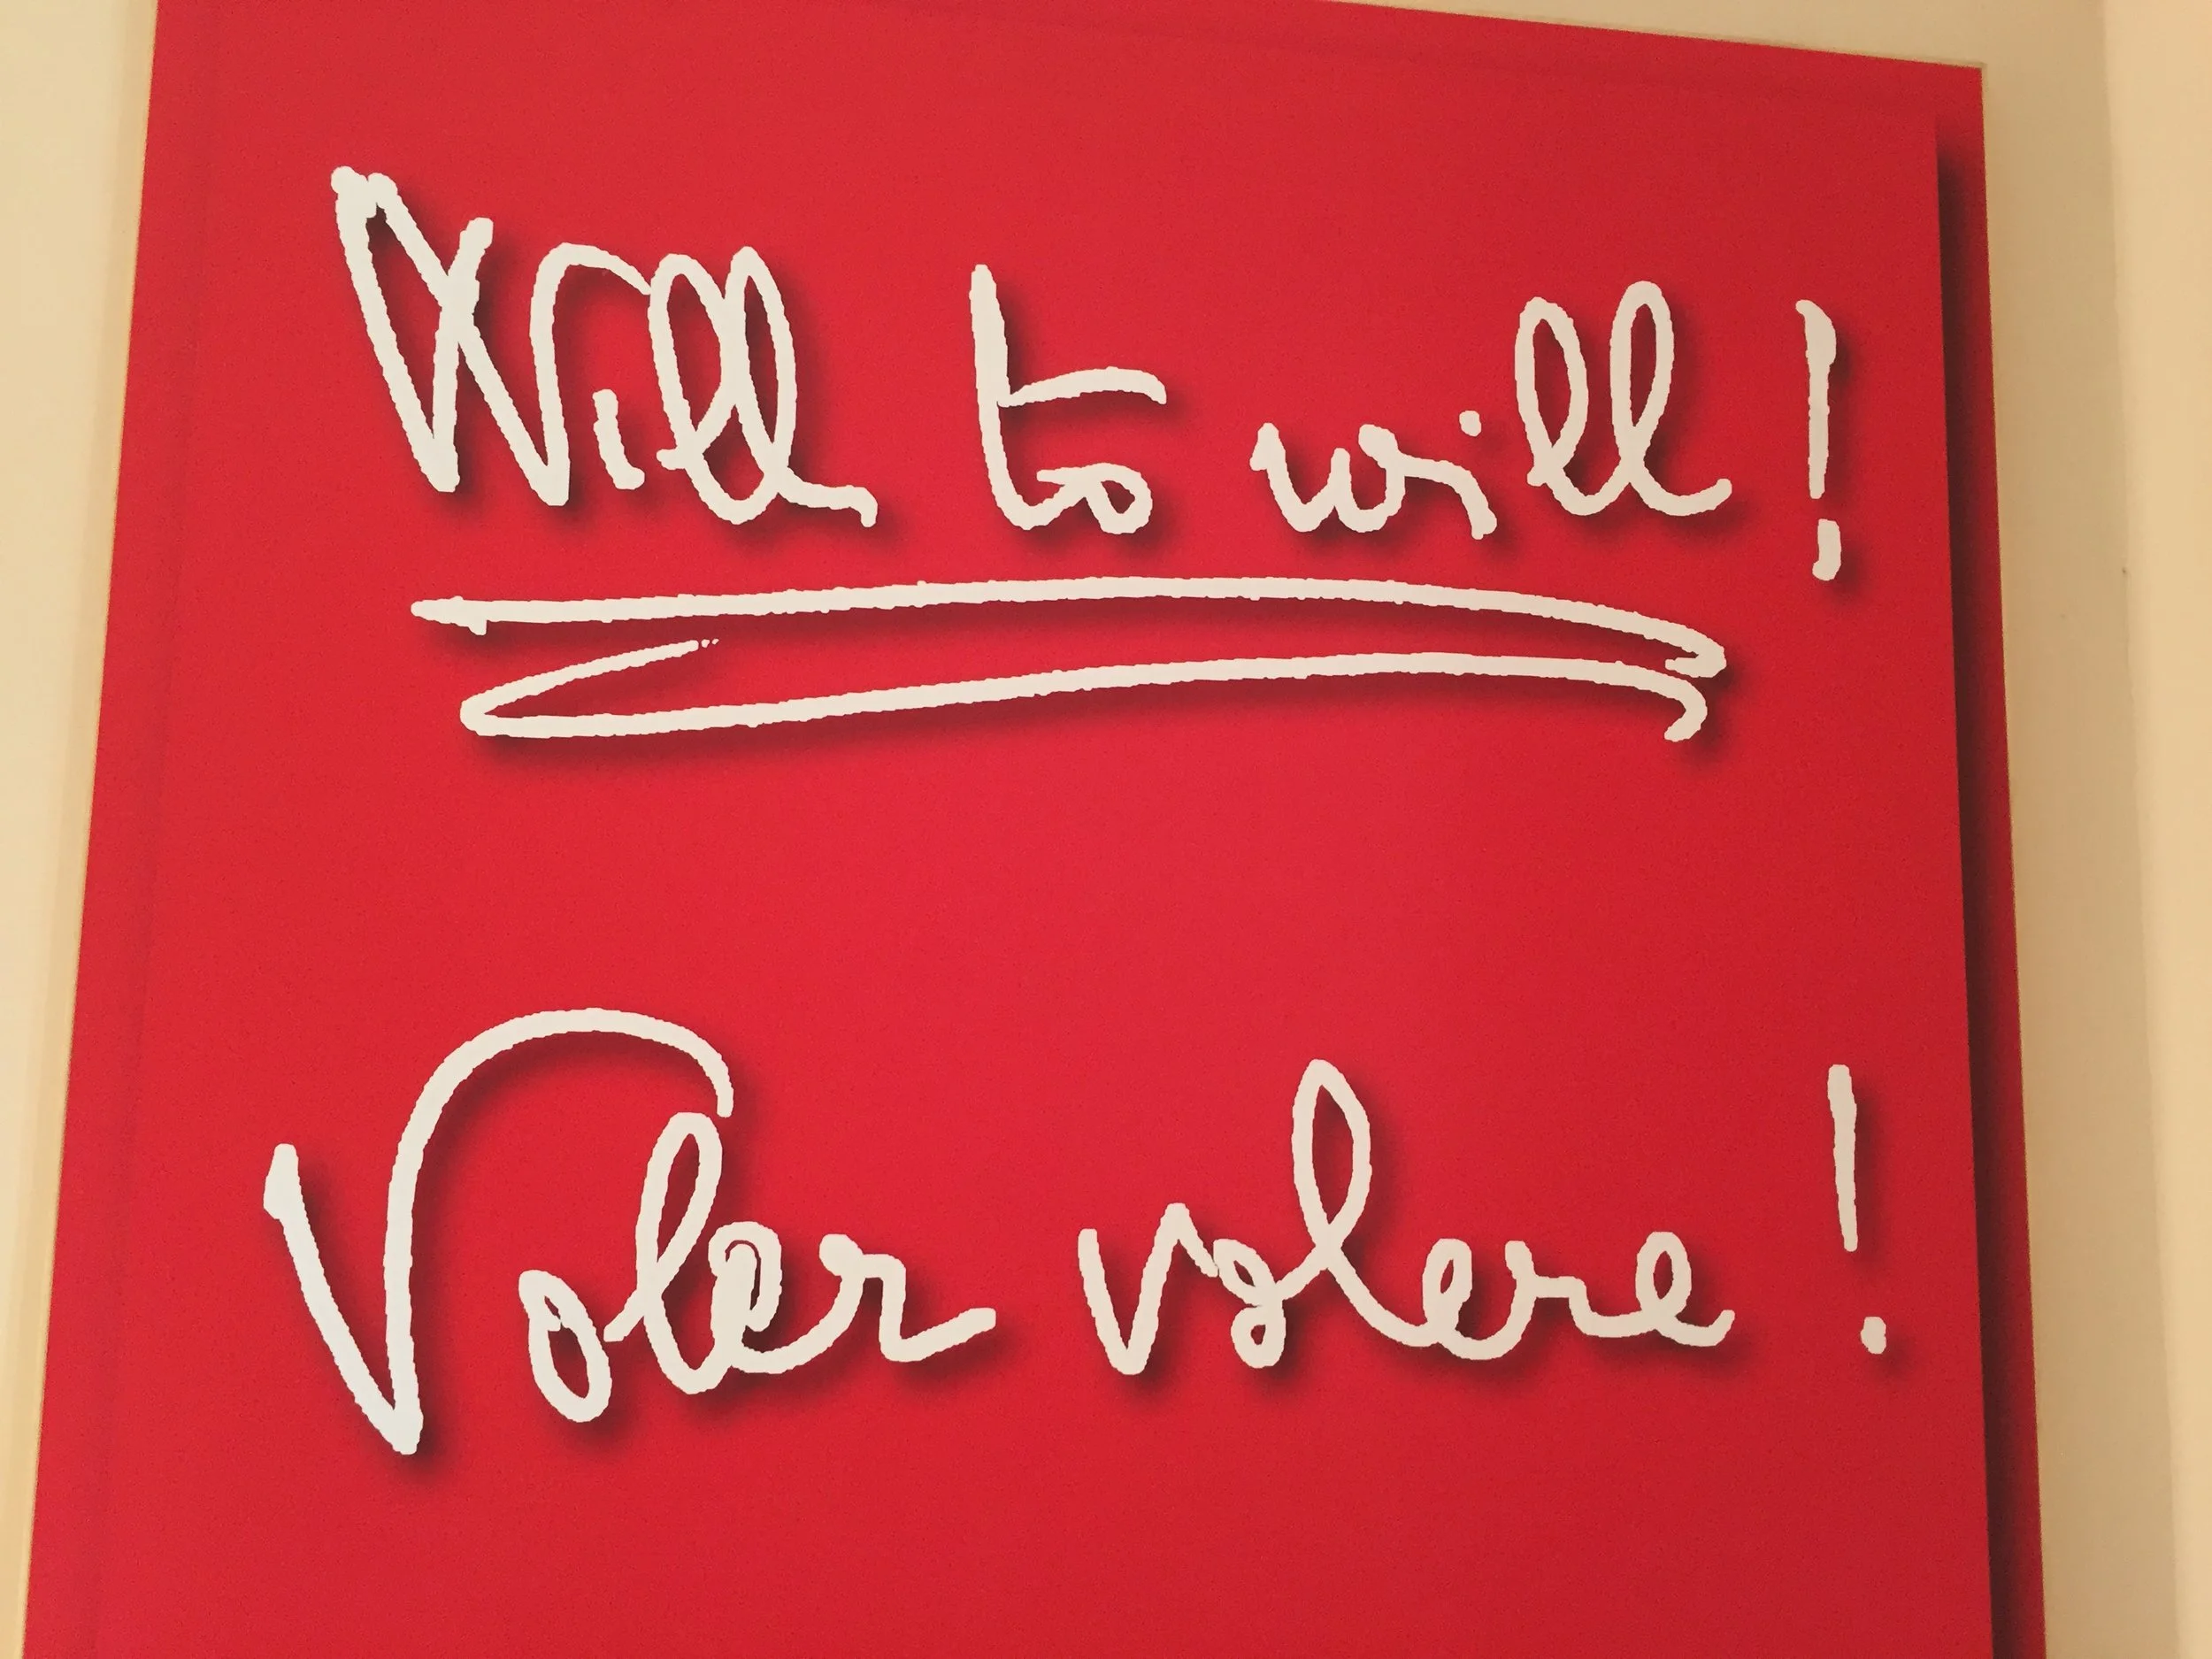 Will to will!
Voler volere!